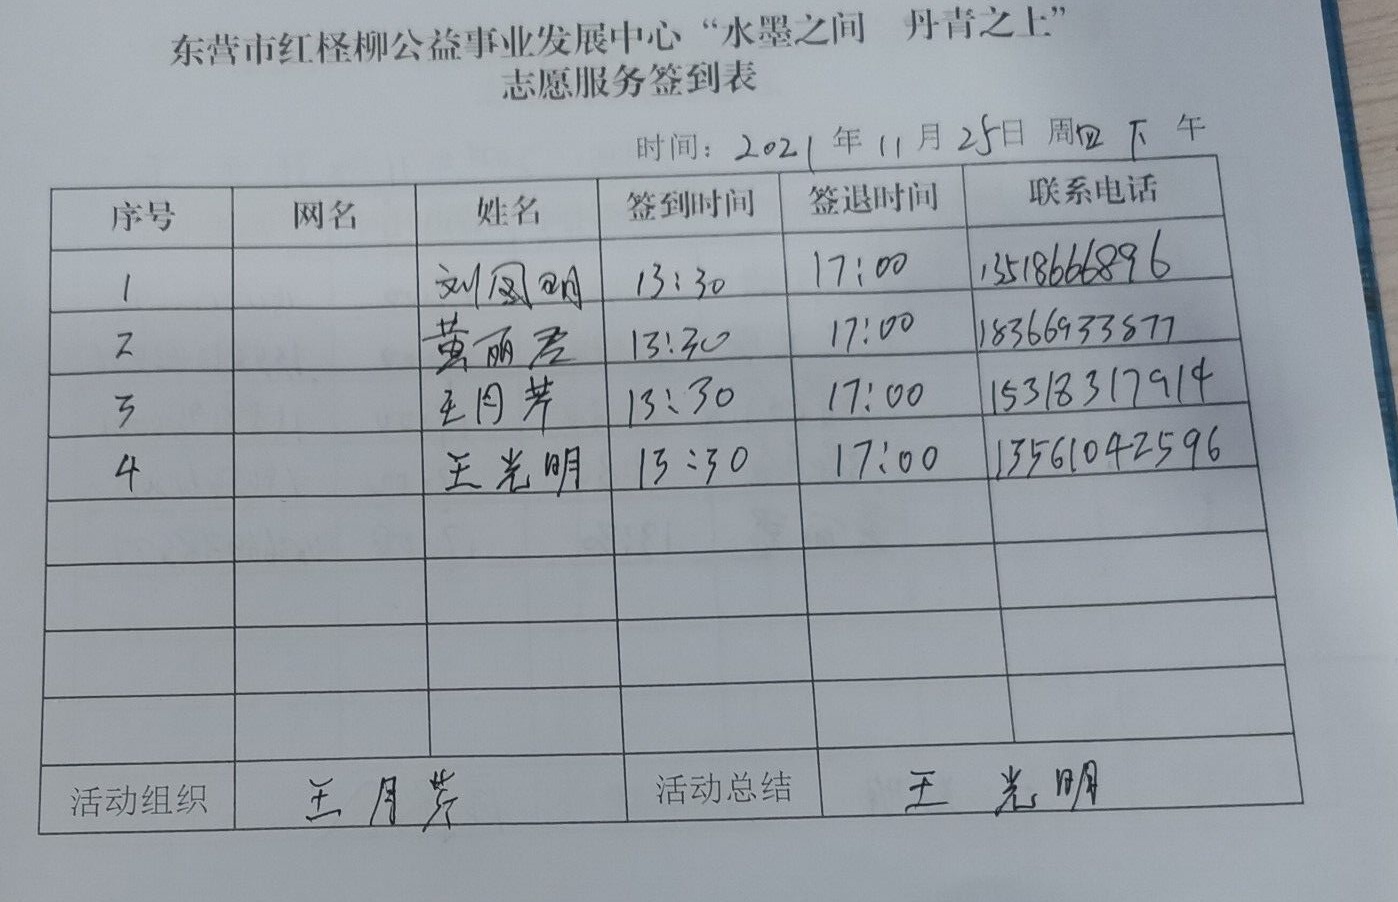 东营市红柽柳公益事业发展中心“水墨之间 丹青之上”
志愿服务签到表
时间：2021年11月25日 周四 下 午
序号 网名 姓名 签到时间 签退时间 联系电话
1 刘国明 13:30 17:00 13518666896
2 黄丽君 13:30 17:00 18366933877
3 王月芹 13:30 17:00 15318317914
4 王光明 13:30 17:00 13561042596
活动组织 王月芹 活动总结 王光明